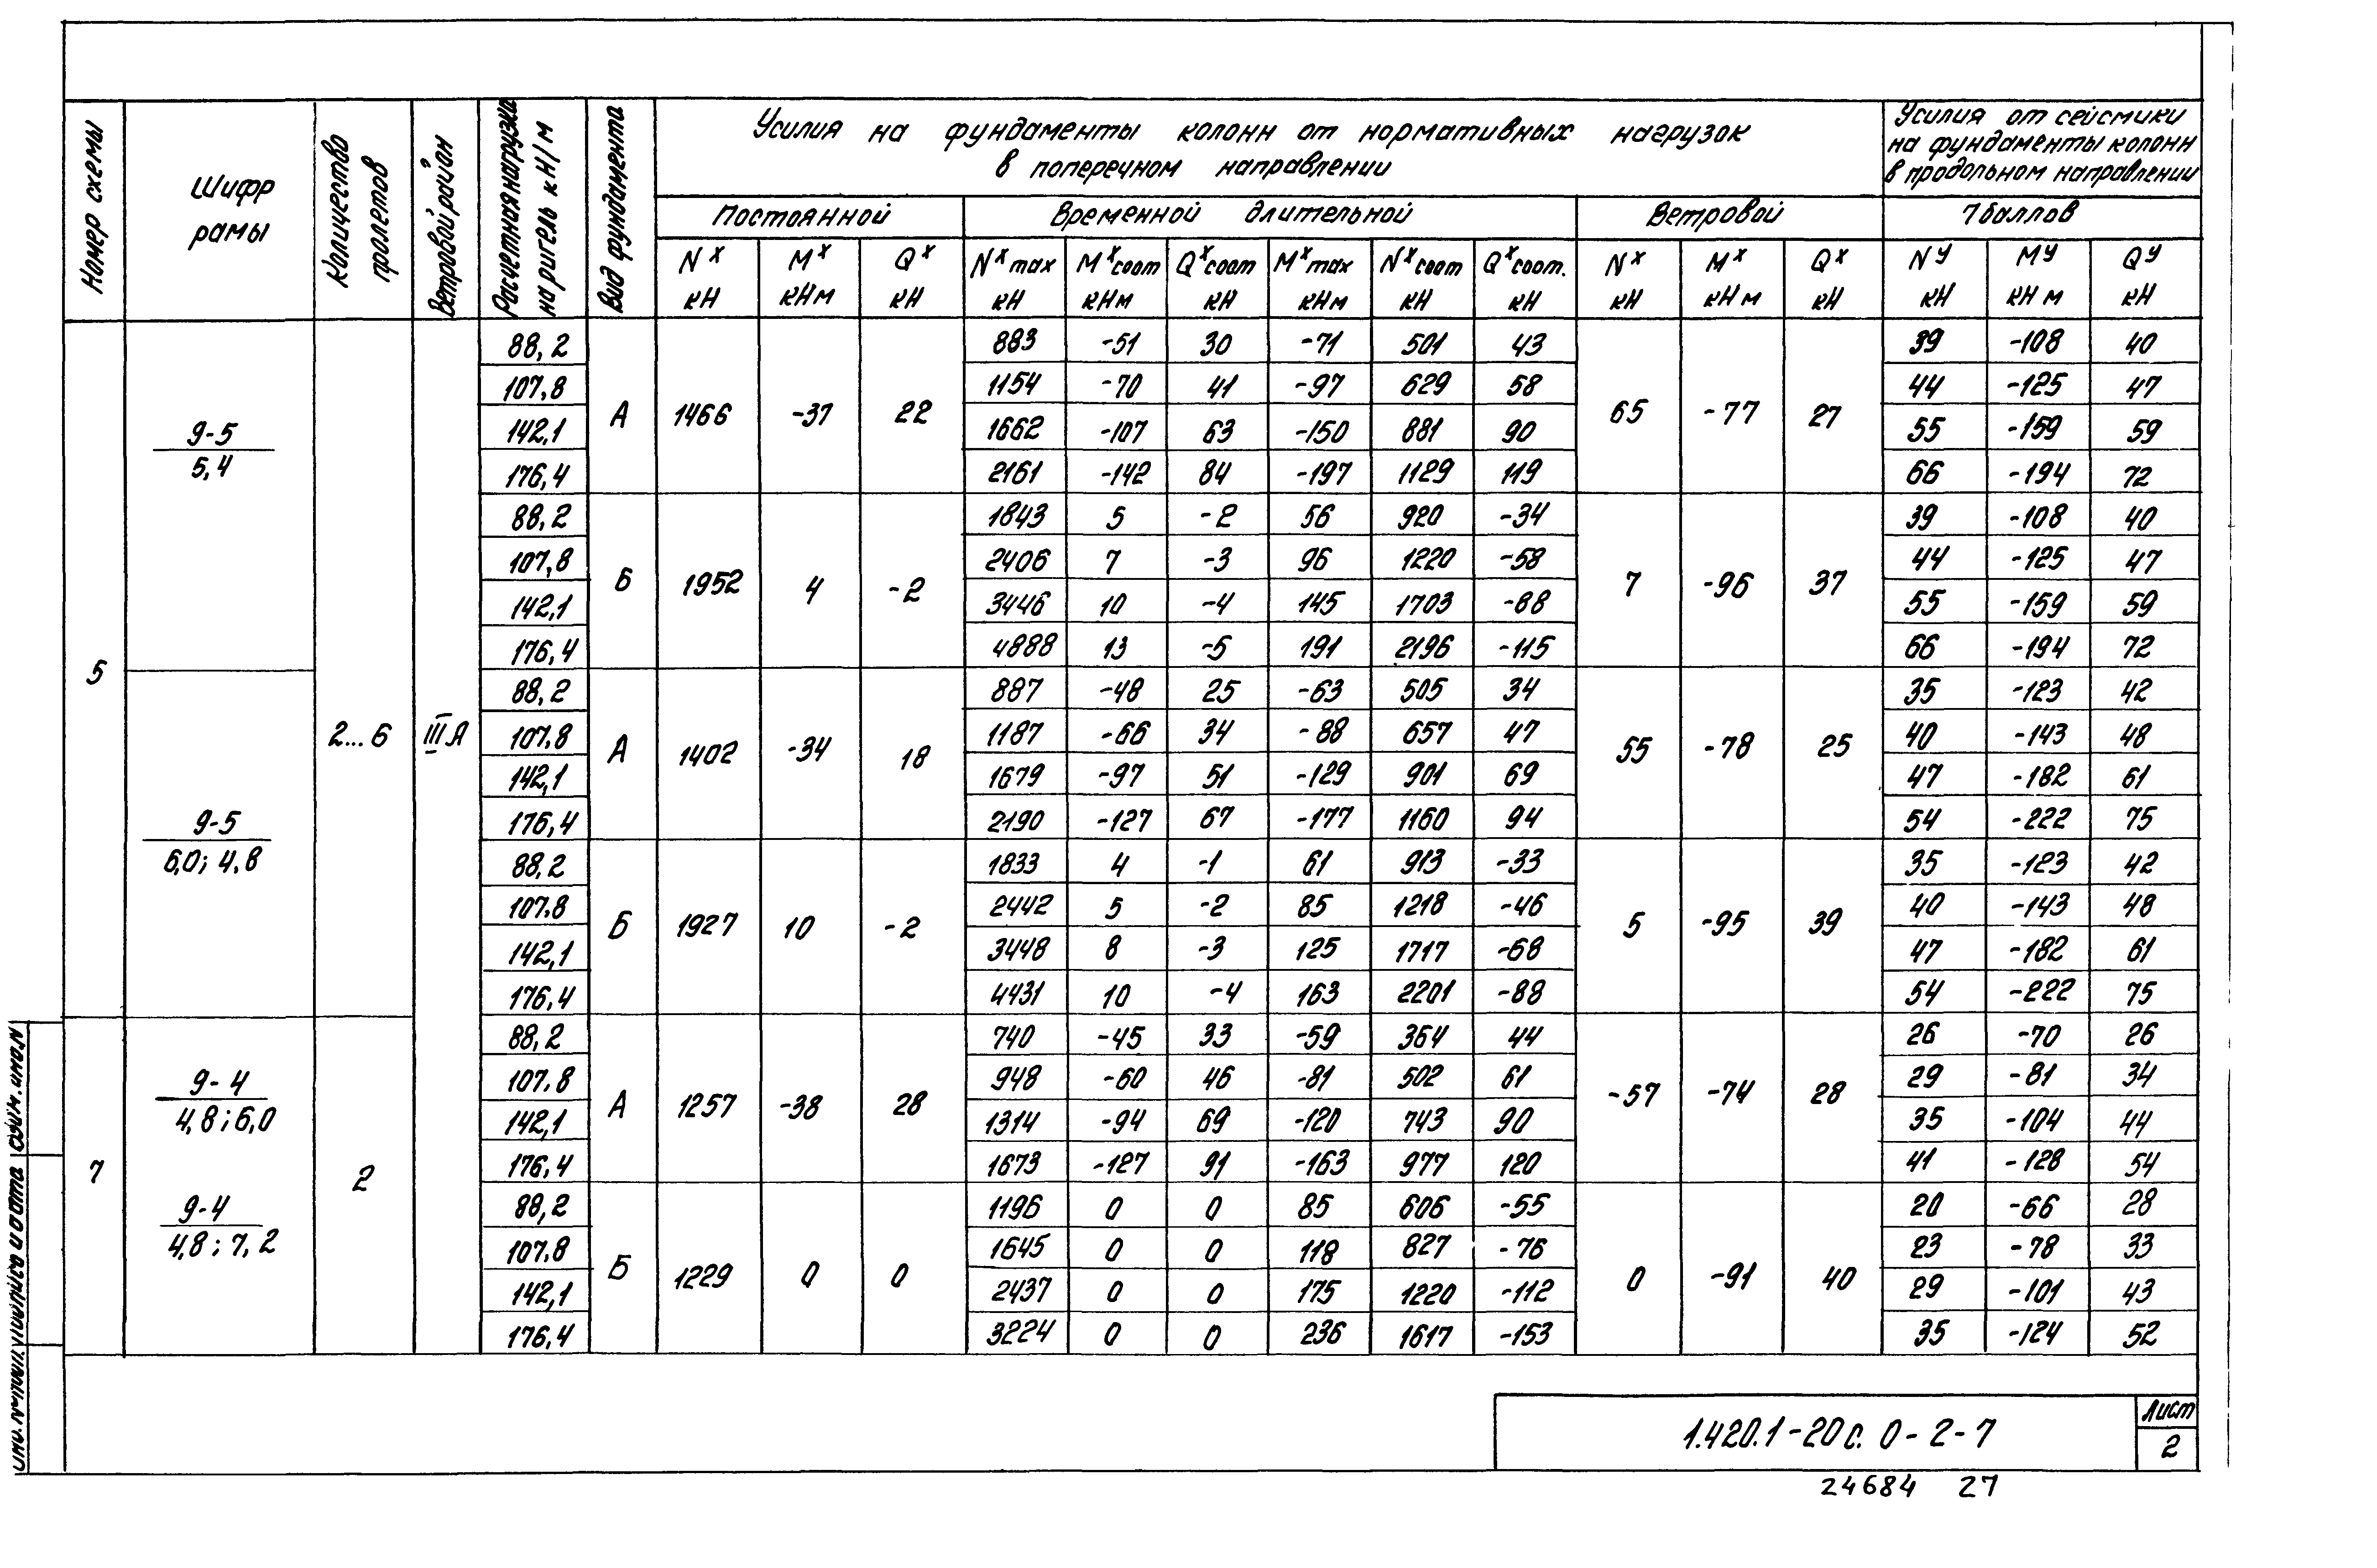 Номер схемы
Шифр рамы
Количество пролетов
Ветровой район
Расчетная нагрузка на ригель кН/м
Вид фундамента
Усилия на фундаменты колонн от нормативных нагрузок
в поперечном направлении
Усилия от сейсмики
на фундаменты колонн
в продольном направлении
Постоянной Временной длительной Ветровой 7 баллов
N^x M^x Q^x N^x max M^x соот Q^x соот M^x max N^x соот Q^x соот. N^x M^x Q^x N^y M^y Q^y
кН кНм кН кН кНм кН кНм кН кН кН кНм кН кН кНм кН
5
9-5
5,4
2...6 III А
А 1466 -37 22 65 -77 27
88,2 883 -51 30 -71 501 43 39 -108 40
107,8 1154 -70 41 -97 629 58 44 -125 47
142,1 1662 -107 63 -150 881 90 55 -159 59
176,4 2161 -142 84 -197 1129 119 66 -194 72
Б 1952 4 -2 7 -96 37
88,2 1843 5 -2 56 920 -34 39 -108 40
107,8 2406 7 -3 96 1220 -58 44 -125 47
142,1 3446 10 -4 145 1703 -88 55 -159 59
176,4 4888 13 -5 191 2196 -115 66 -194 72
9-5
6,0; 4,8
А 1402 -34 18 55 -78 25
88,2 887 -48 25 -63 505 34 35 -123 42
107,8 1187 -66 34 -88 657 47 40 -143 48
142,1 1679 -97 51 -129 901 69 47 -182 61
176,4 2190 -127 67 -177 1160 94 54 -222 75
Б 1927 10 -2 5 -95 39
88,2 1833 4 -1 61 913 -33 35 -123 42
107,8 2442 5 -2 85 1218 -46 40 -143 48
142,1 3448 8 -3 125 1717 -68 47 -182 61
176,4 4431 10 -4 163 2201 -88 54 -222 75
7
9-4
4,8; 6,0
9-4
4,8; 7,2
2
А 1257 -38 28 -57 -74 28
88,2 740 -45 33 -59 364 44 26 -70 26
107,8 948 -60 46 -81 502 61 29 -81 34
142,1 1314 -94 69 -120 743 90 35 -104 44
176,4 1673 -127 91 -163 977 120 41 -128 54
Б 1229 0 0 0 -91 40
88,2 1196 0 0 85 606 -55 20 -66 28
107,8 1645 0 0 118 827 -76 23 -78 33
142,1 2437 0 0 175 1220 -112 29 -101 43
176,4 3224 0 0 236 1617 -153 35 -124 52
1.420.1-20с. 0-2-7
Лист
2
24684 27